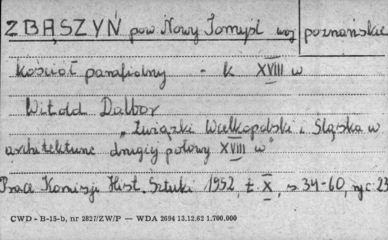 ZBĄSZYŃ pow Nowy Tomyśl woj poznańskie
kościół parafialny - k XVIII w
Witold Dalbor
„Związki Wielkopolski i Śląska w
architekturze drugiej połowy XVIII w"
Prace Komisji Hist. Sztuki 1952, t. X, s. 34-60, ryc 23
CWD - B-15-b, nr 2827/ZW/P — WDA 2694 13.12.62 1.700.000